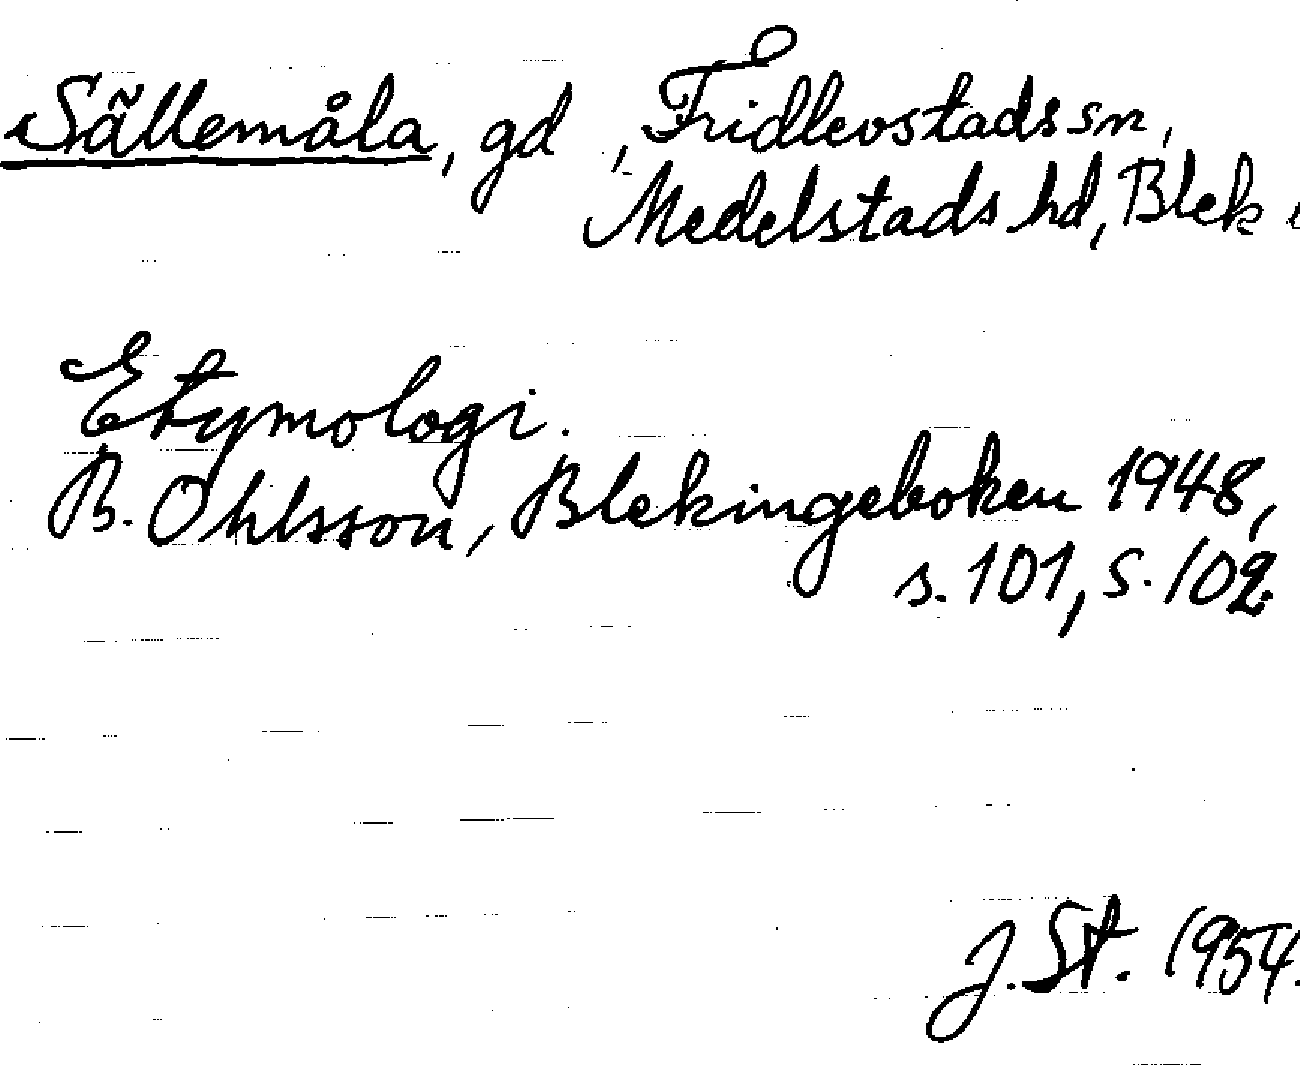 Sällemåla, gd, Fridlevstads sn,
Medelstads hd, Blek
Etymologi.
B. Ohlsson, Blekingeboken 1948,
s. 101, s. 102.
J. St. 1954.